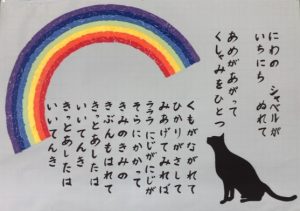 にわの　シャベルが
いちにち　ぬれて
あめがあがって
くしゃみをひとつ
くもがながれて
ひかりがさして
みあげてみれば
ラララ にじがにじが
そらにかかって
きみのきみの
きぶんもはれて
きっとあしたは
いいてんき
きっとあしたは
いいてんき